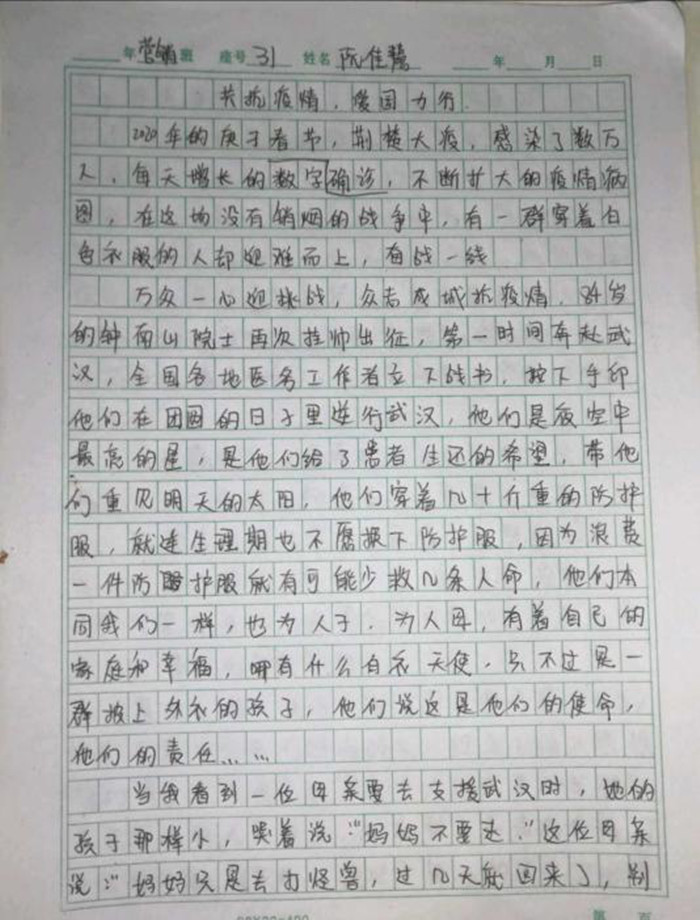 年 营销 班 座号 31 姓名 阮佳 年 月 日
共抗疫情，爱国力行.
2020年的庚子春节，荆楚大疫，感染了数万
人，每天增长的数字确诊，不断扩大的疫情病
图，在这场没有销烟的战争中，有一群穿着白
色衣服的人却迎难而上，奋战一线
万众一心迎挑战，众志成城抗疫情，84岁
的钟南山院士再次挂帅出征，第一时间奔赴武
汉，全国各地医务工作者立下战书，按下手印
他们在团圆的日子里逆行武汉，他们是夜空中
最亮的星，是他们给了患者生还的希望，带他
们重见明天的太阳，他们穿着几十斤重的防护
服，就连生理期也不愿换下防护服，因为浪费
一件防护服就有可能少救几条人命，他们本
同我们一样，也为人子，为人母，有着自己的
家庭和幸福，哪有什么白衣天使，只不过是一
群披上外衣的孩子，他们说这是他们的使命，
他们的责任……
当我看到一位母亲要去支援武汉时，她的
孩子那样小，哭着说："妈妈不要走."这位母亲
说："妈妈只是去打怪兽，过几天就回来了，别